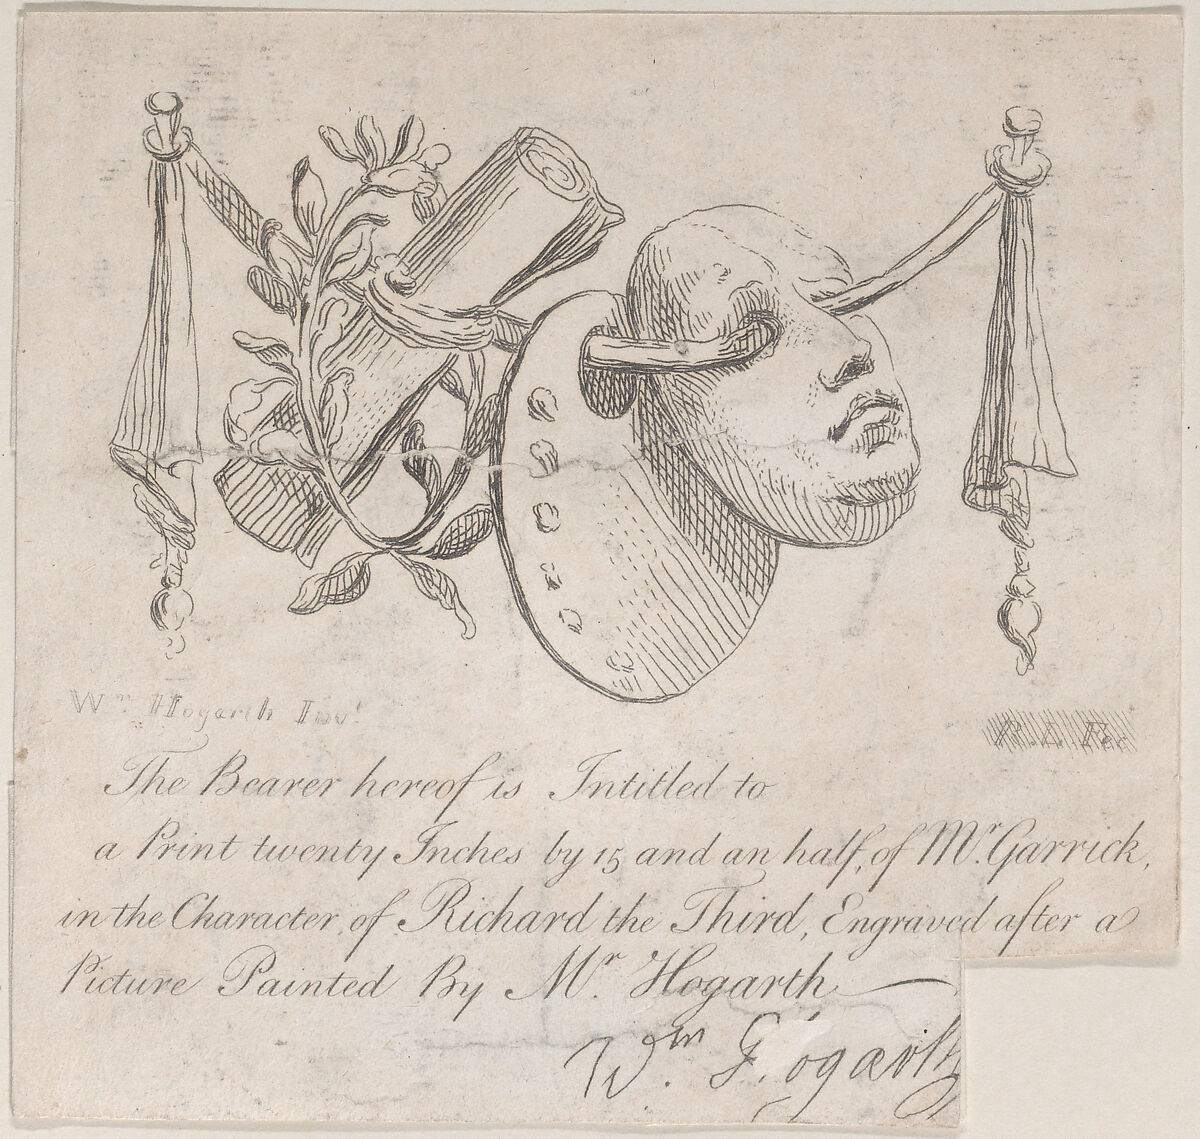 Wm Hogarth Invt
The Bearer hereof is Intitled to
a Print twenty Inches by 15 and an half, of Mr. Garrick,
in the Character of Richard the Third, Engraved after a
Picture Painted By Mr. Hogarth
Wm. Hogarth